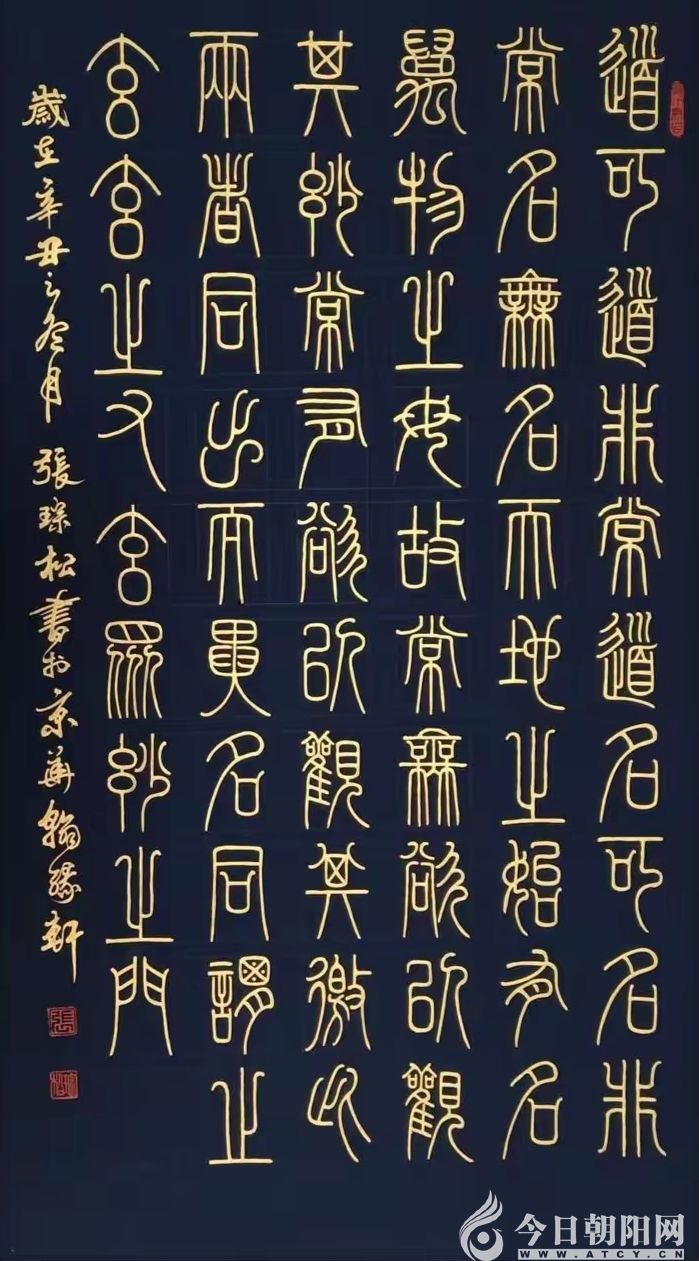 道可道非常道名可名非
常名無名天地之始有名
萬物之母故常無欲以觀
其妙常有欲以觀其徼此
兩者同出而異名同謂之
玄玄之又玄眾妙之門
歲在辛丑之冬月 張松書於京華翰緣軒
今日朝阳网
WWW.ATCY.CN